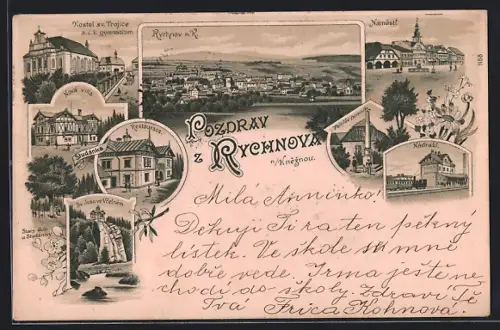 Kostel sv. Trojice
a c. k. gymnasium.
Rychnov n. K.
Náměstí
1158
Nová villa
Restaurace.
Studánka
POZDRAV
Z RYCHNOVA
n/Kněžnou.
Nádraží.
Sv. Ivan ve Včelném
Starý dub
u Studánky
Milá Anninko!
Dekuji Ti za ten pěkný
lístek. Ve škole se mně
dobře vede. Irma ještě ne
chodí do školy. Zdraví Tě
Tvá Frica Kohnová.